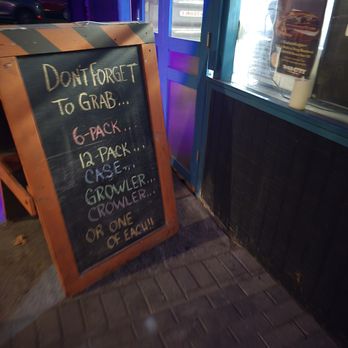 DON'T FORGET
TO GRAB...
6-PACK...
12-PACK...
CASE...
GROWLER...
CROWLER...
OR ONE
OF EACH!!